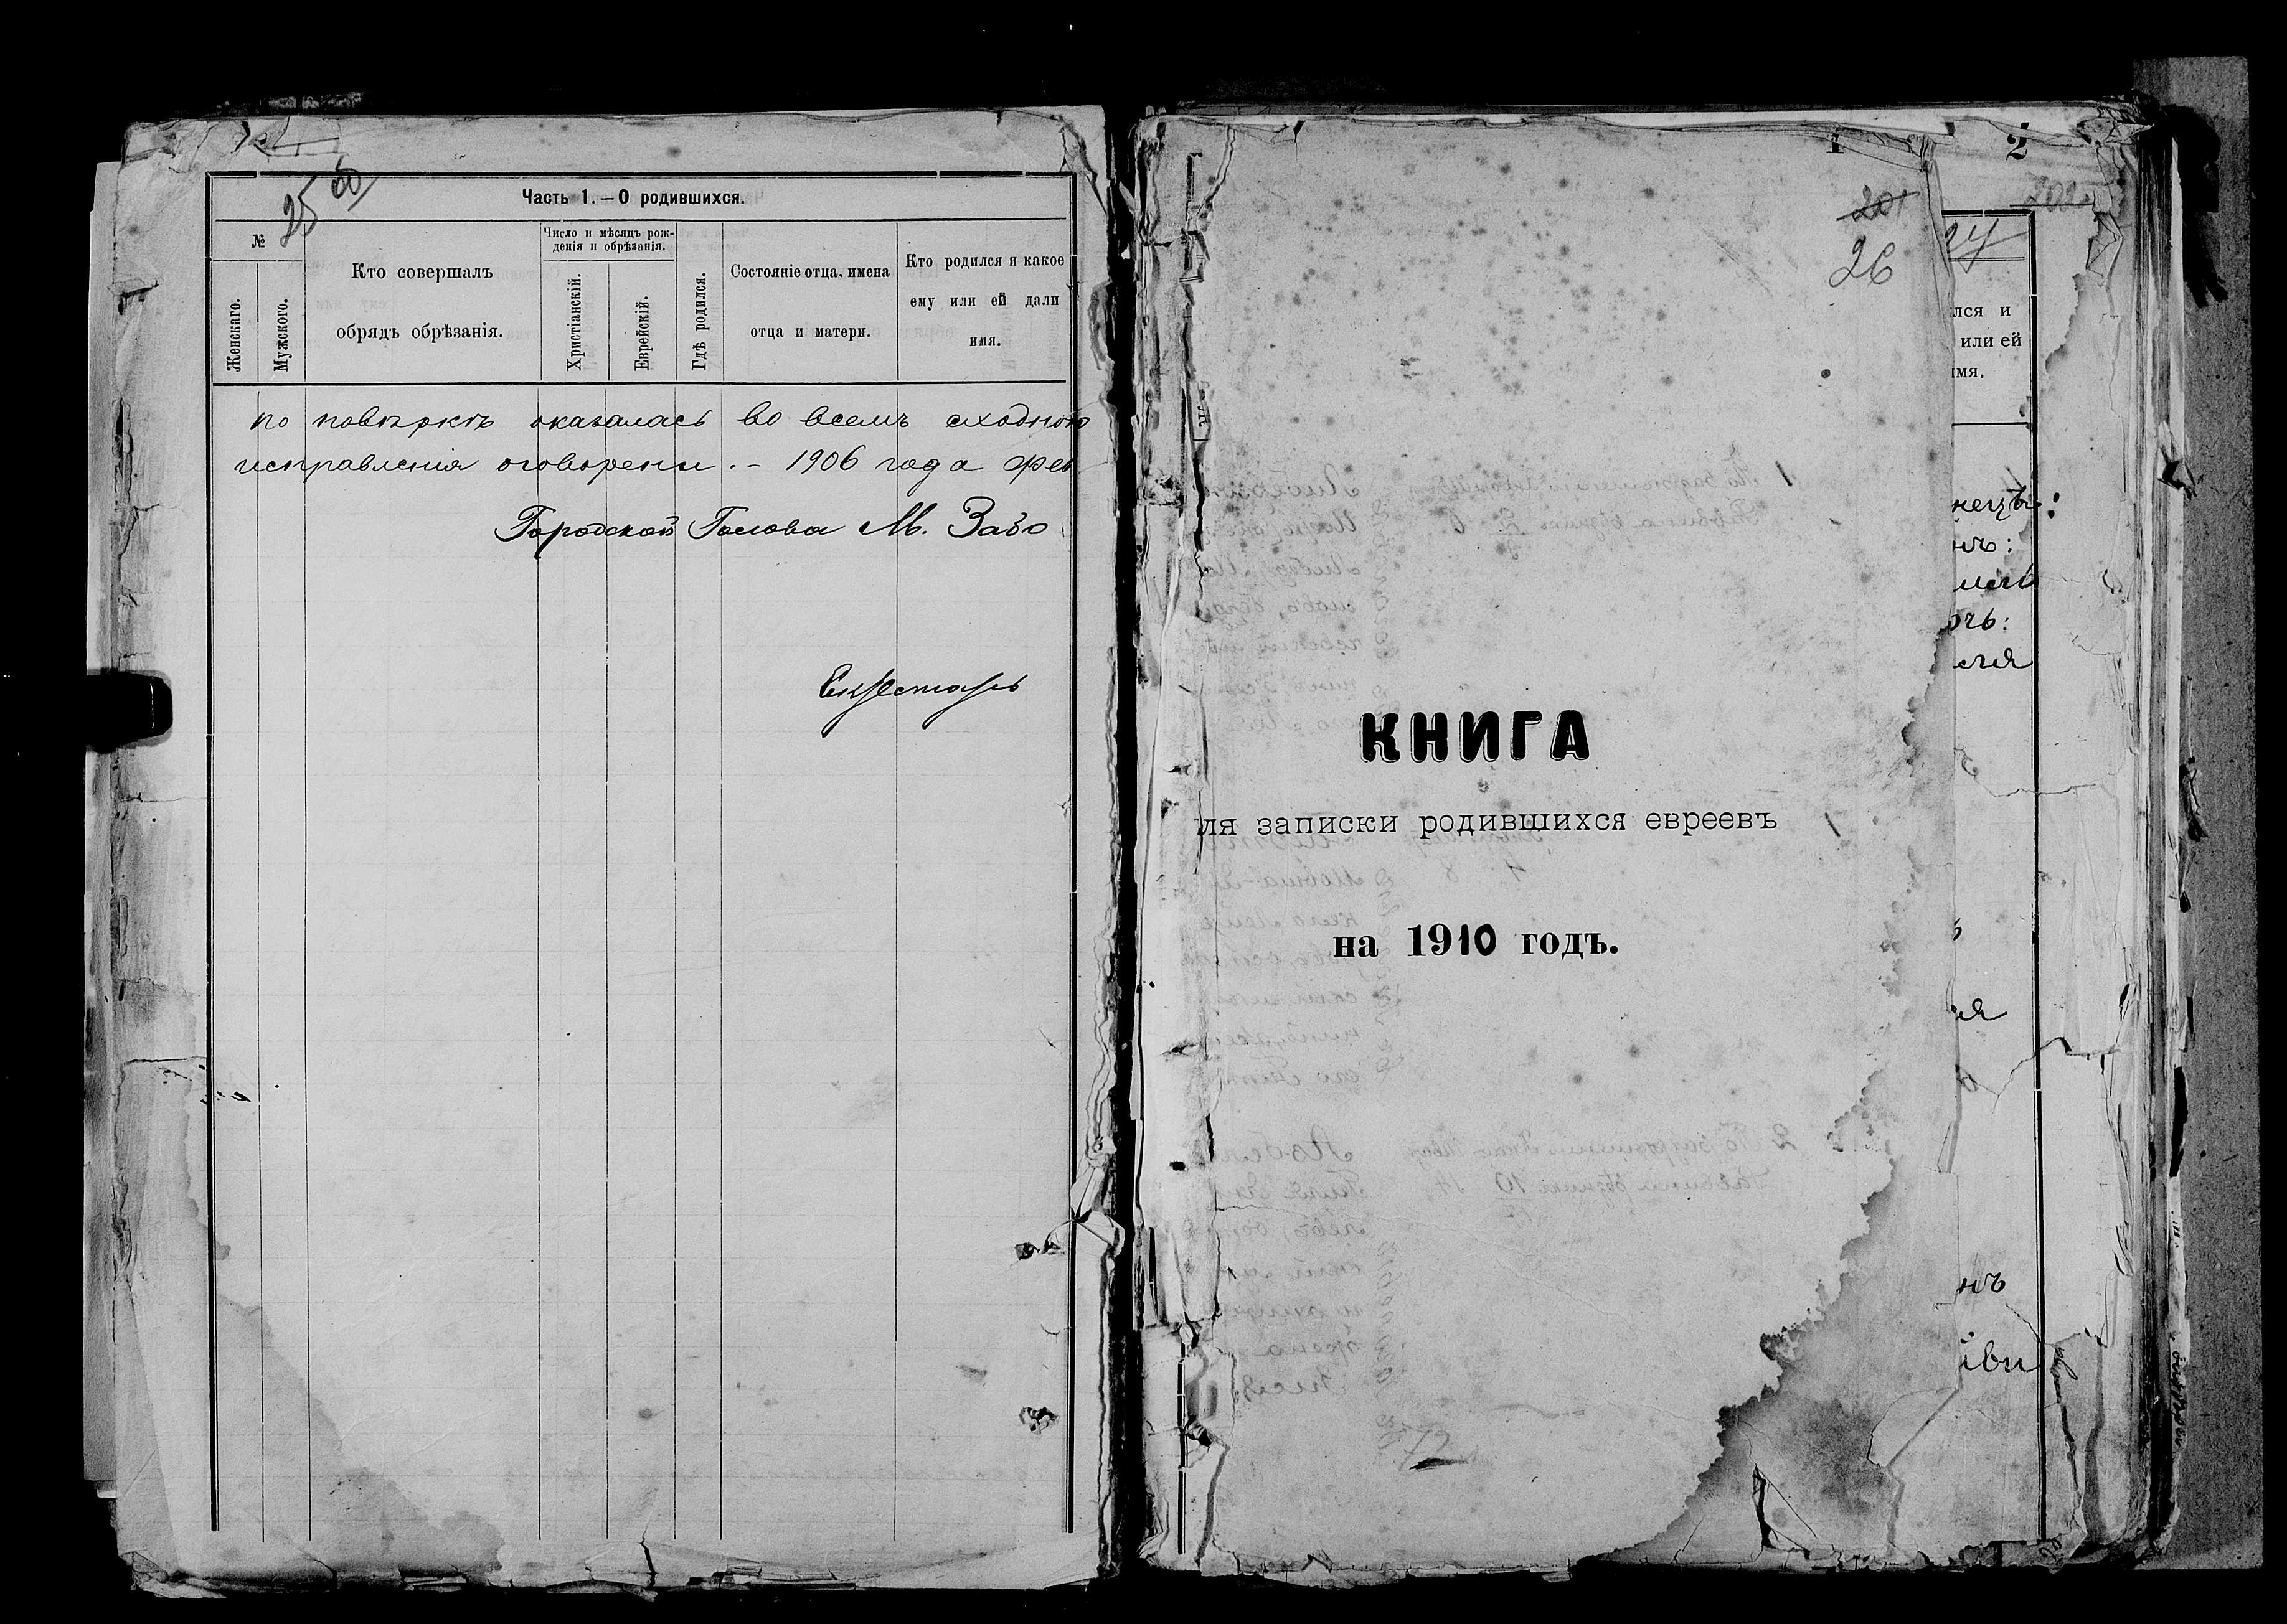 25 об
Часть 1.—О родившихся.
№
Женскаго.
Мужского.
Кто совершалъ
обрядъ обрѣзанія.
Число и мѣсяцъ рож-
денія и обрѣзанія.
Христіанскій.
Еврейскій.
Гдѣ родился.
Состояніе отца, имена
отца и матери.
Кто родился и какое
ему или ей дали
имя.
по повѣркѣ оказалась во всемъ сходною
исправленія оговорены. – 1906 года Фев
Городской Голова М.
Секретарь
1
201
26
КНИГА
ля записки родившихся евреевъ
на 1910 годъ.
12
2
202
27
лся и
или ей
имя.
нецъ:
нъ:
очь:
ня
нъ